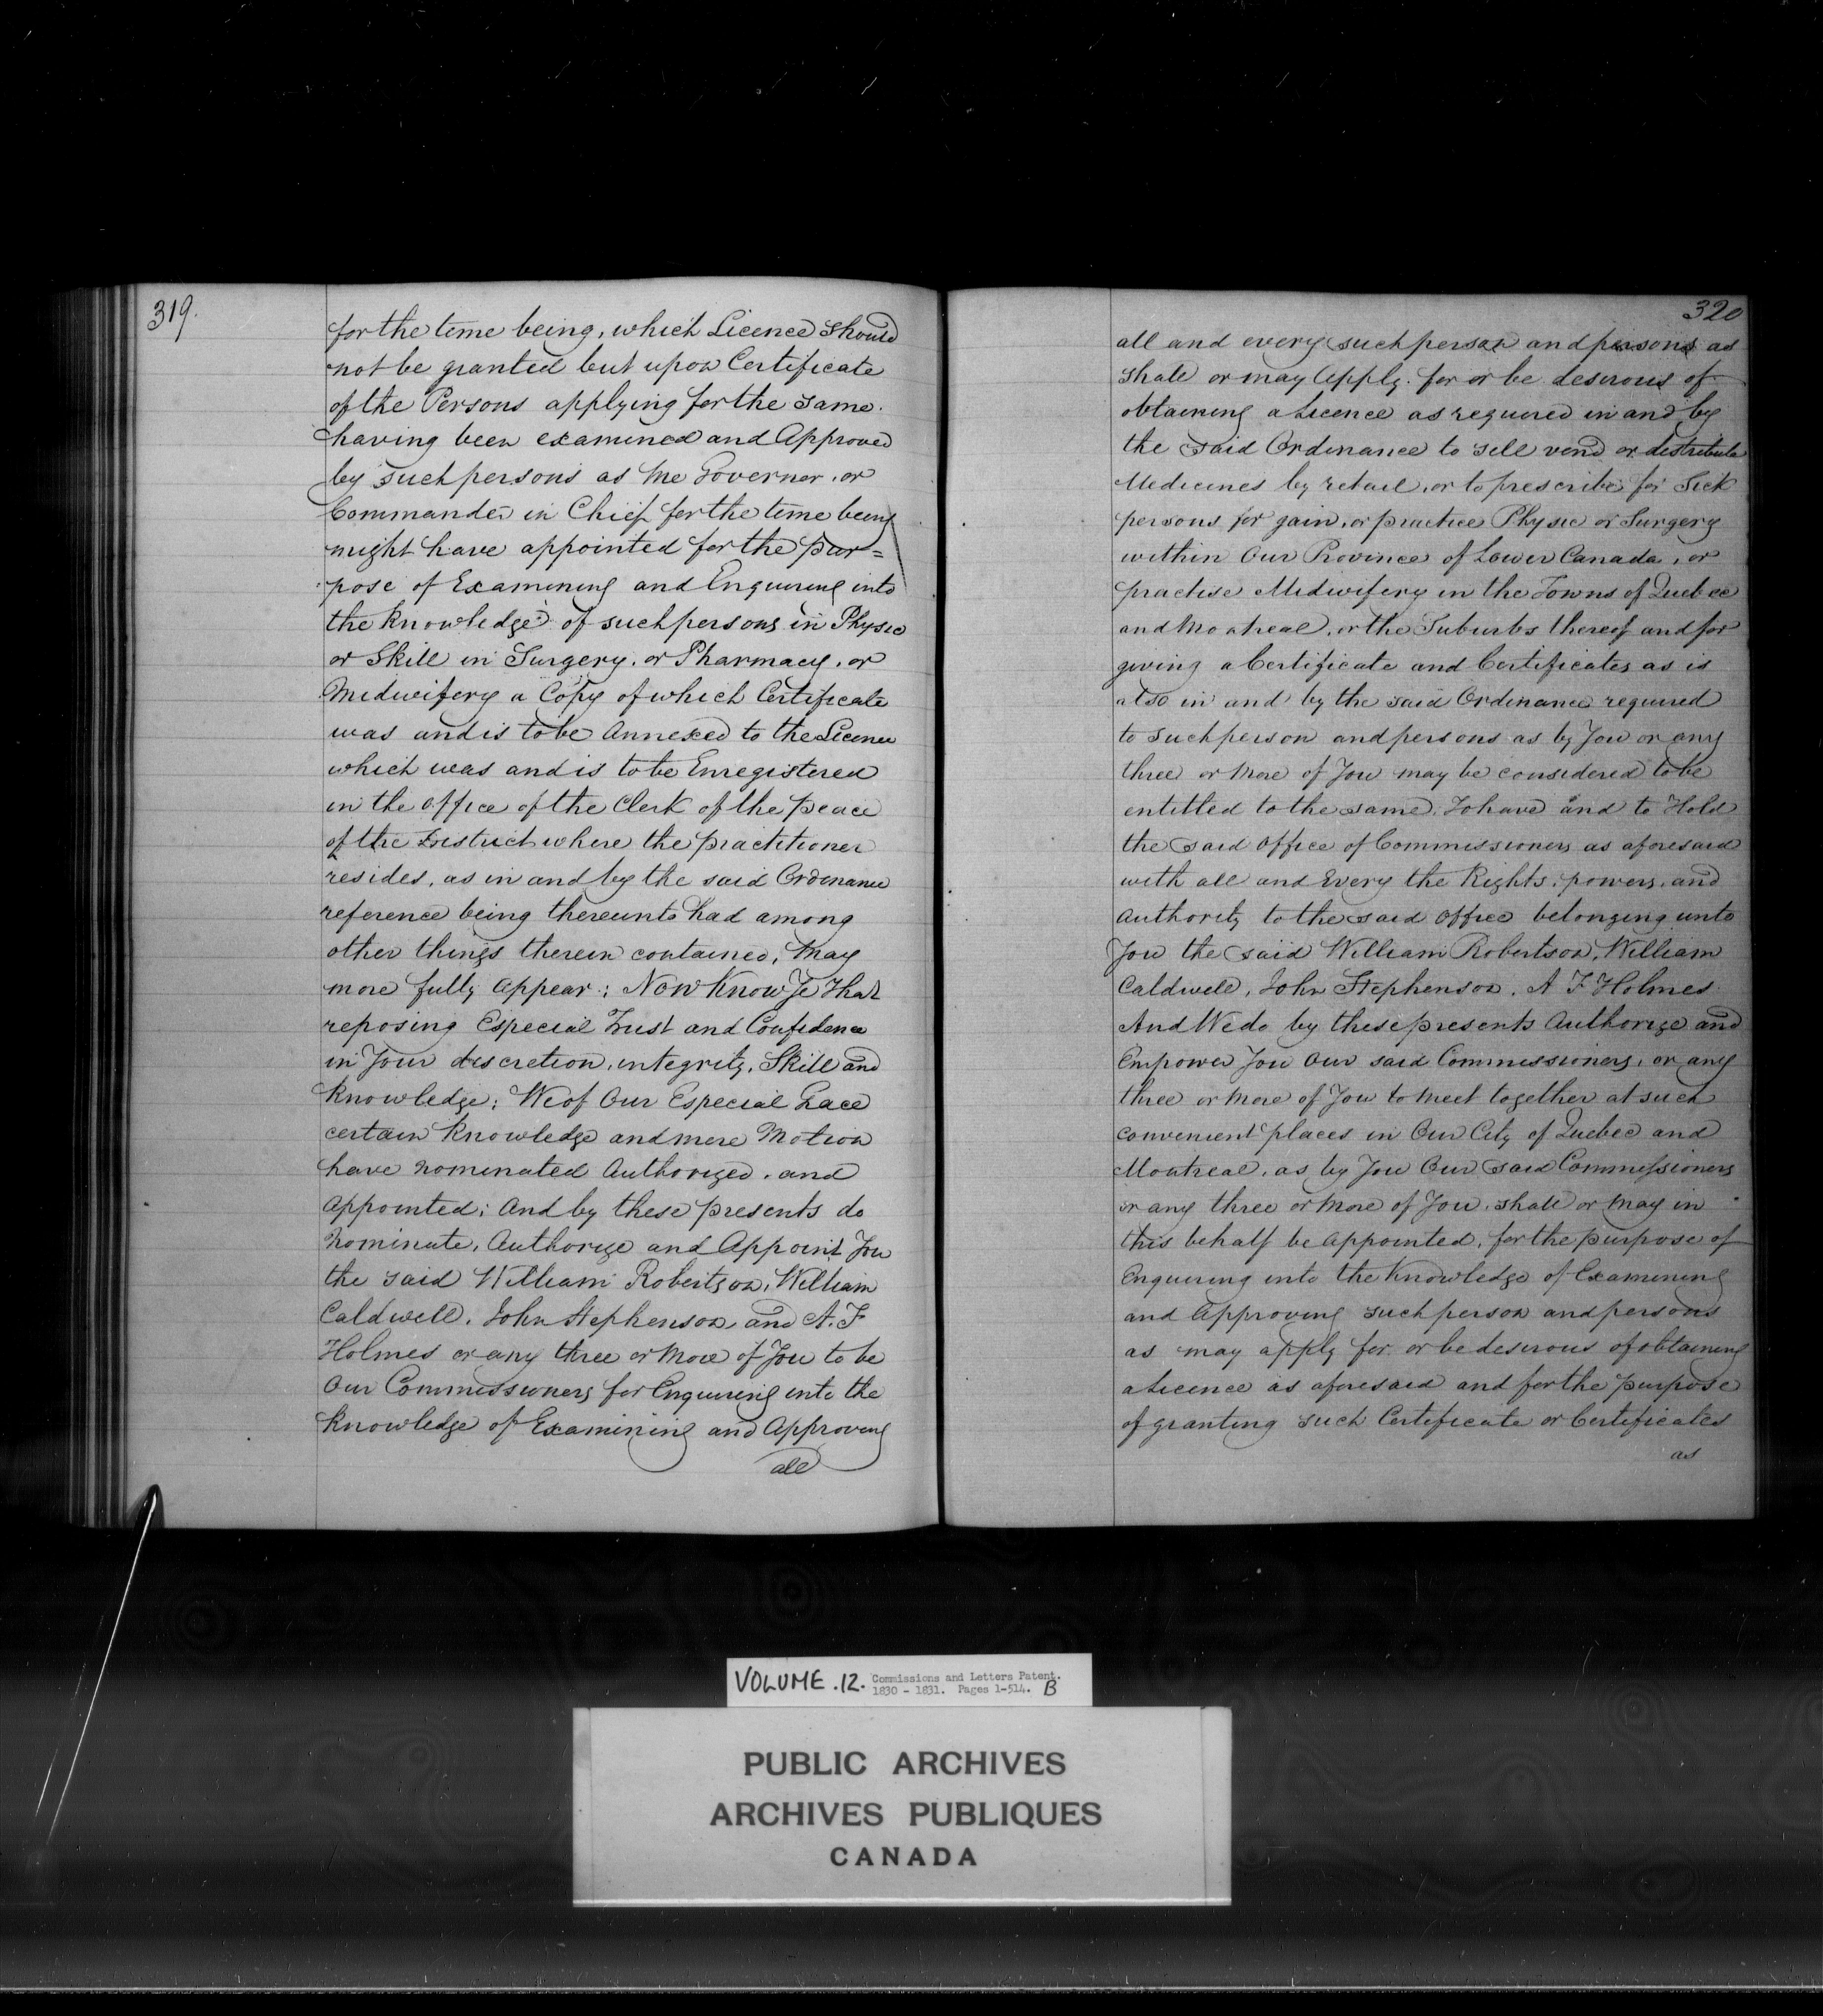 319.
for the time being, which Licence should
not be granted but upon Certificate
of the Persons applying for the same.
having been examined and Approved
by such persons as the Governor, or
Commander in Chief for the time being
might have appointed for the pur=
pose of Examining and Enquiring into
the knowledge of such persons in Physic
or Skill in Surgery, or Pharmacy, or
Midwifery a Copy of which Certificate
was and is to be Annexed to the Licence
which was and is to be Enregistered
in the office of the Clerk of the peace
of the District where the practitioner
resides, as in and by the said Ordinance
reference being thereunto had among
other things therein contained, may
more fully appear: Now Know Ye That
reposing Especial Trust and Confidence
in Your discretion, integrity, Skill and
knowledge; We of Our Especial Grace
certain knowledge and mere Motion
have nominated Authorized, and
appointed; And by these presents do
Nominate, Authorize and Appoint You
the said William Robertson, William
Caldwell, John Stephenson, and A. F
Holmes or any three or More of You to be
Our Commissioners for Enquiring into the
knowledge of Examining and Approving
all
320
all and every such person and persons as
shall or may Apply for or be desirous of
obtaining a Licence as required in and by
the said Ordinance to sell vend or distribute
Medicines by retail, or to prescribe for Sick
persons for gain, or practice Physic or Surgery
within Our Province of Lower Canada, or
practise Midwifery in the Towns of Quebec
and Montreal, or the Suburbs thereof and for
giving a Certificate and Certificates as is
also in and by the said Ordinance required
to such person and persons as by You or any
three or more of You may be considered to be
entitled to the same, To have and to Hold
the said Office of Commissioners as aforesaid
with all and Every the Rights, powers, and
Authority to the said office belonging unto
You the said William Robertson, William
Caldwell, John Stephenson, A F Holmes
And We do by these presents Authorize and
Empower You Our said Commissioners, or any
three or more of You to meet together at such
convenient places in Our City of Quebec and
Montreal, as by You Our said Commissioners
or any three or more of You, shall or may in
this behalf be appointed, for the purpose of
Enquiring into the knowledge of Examining
and Approving such person and persons
as may apply for or be desirous of obtaining
a Licence as aforesaid and for the purpose
of granting such Certificate or Certificates
as
VOLUME .12. Commissions and Letters Patent.
1830 - 1831. Pages 1-514. B
PUBLIC ARCHIVES
ARCHIVES PUBLIQUES
CANADA